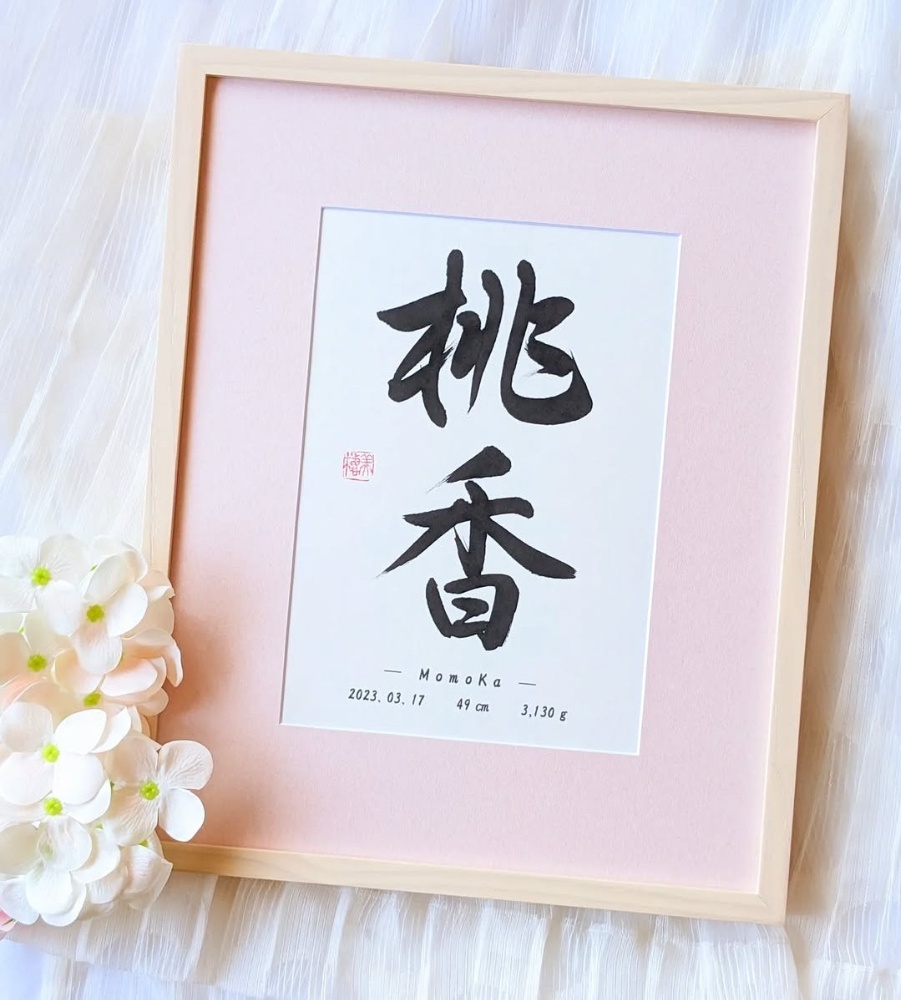 桃香
— MomoKa —
2023. 03. 17 49 cm 3,130 g